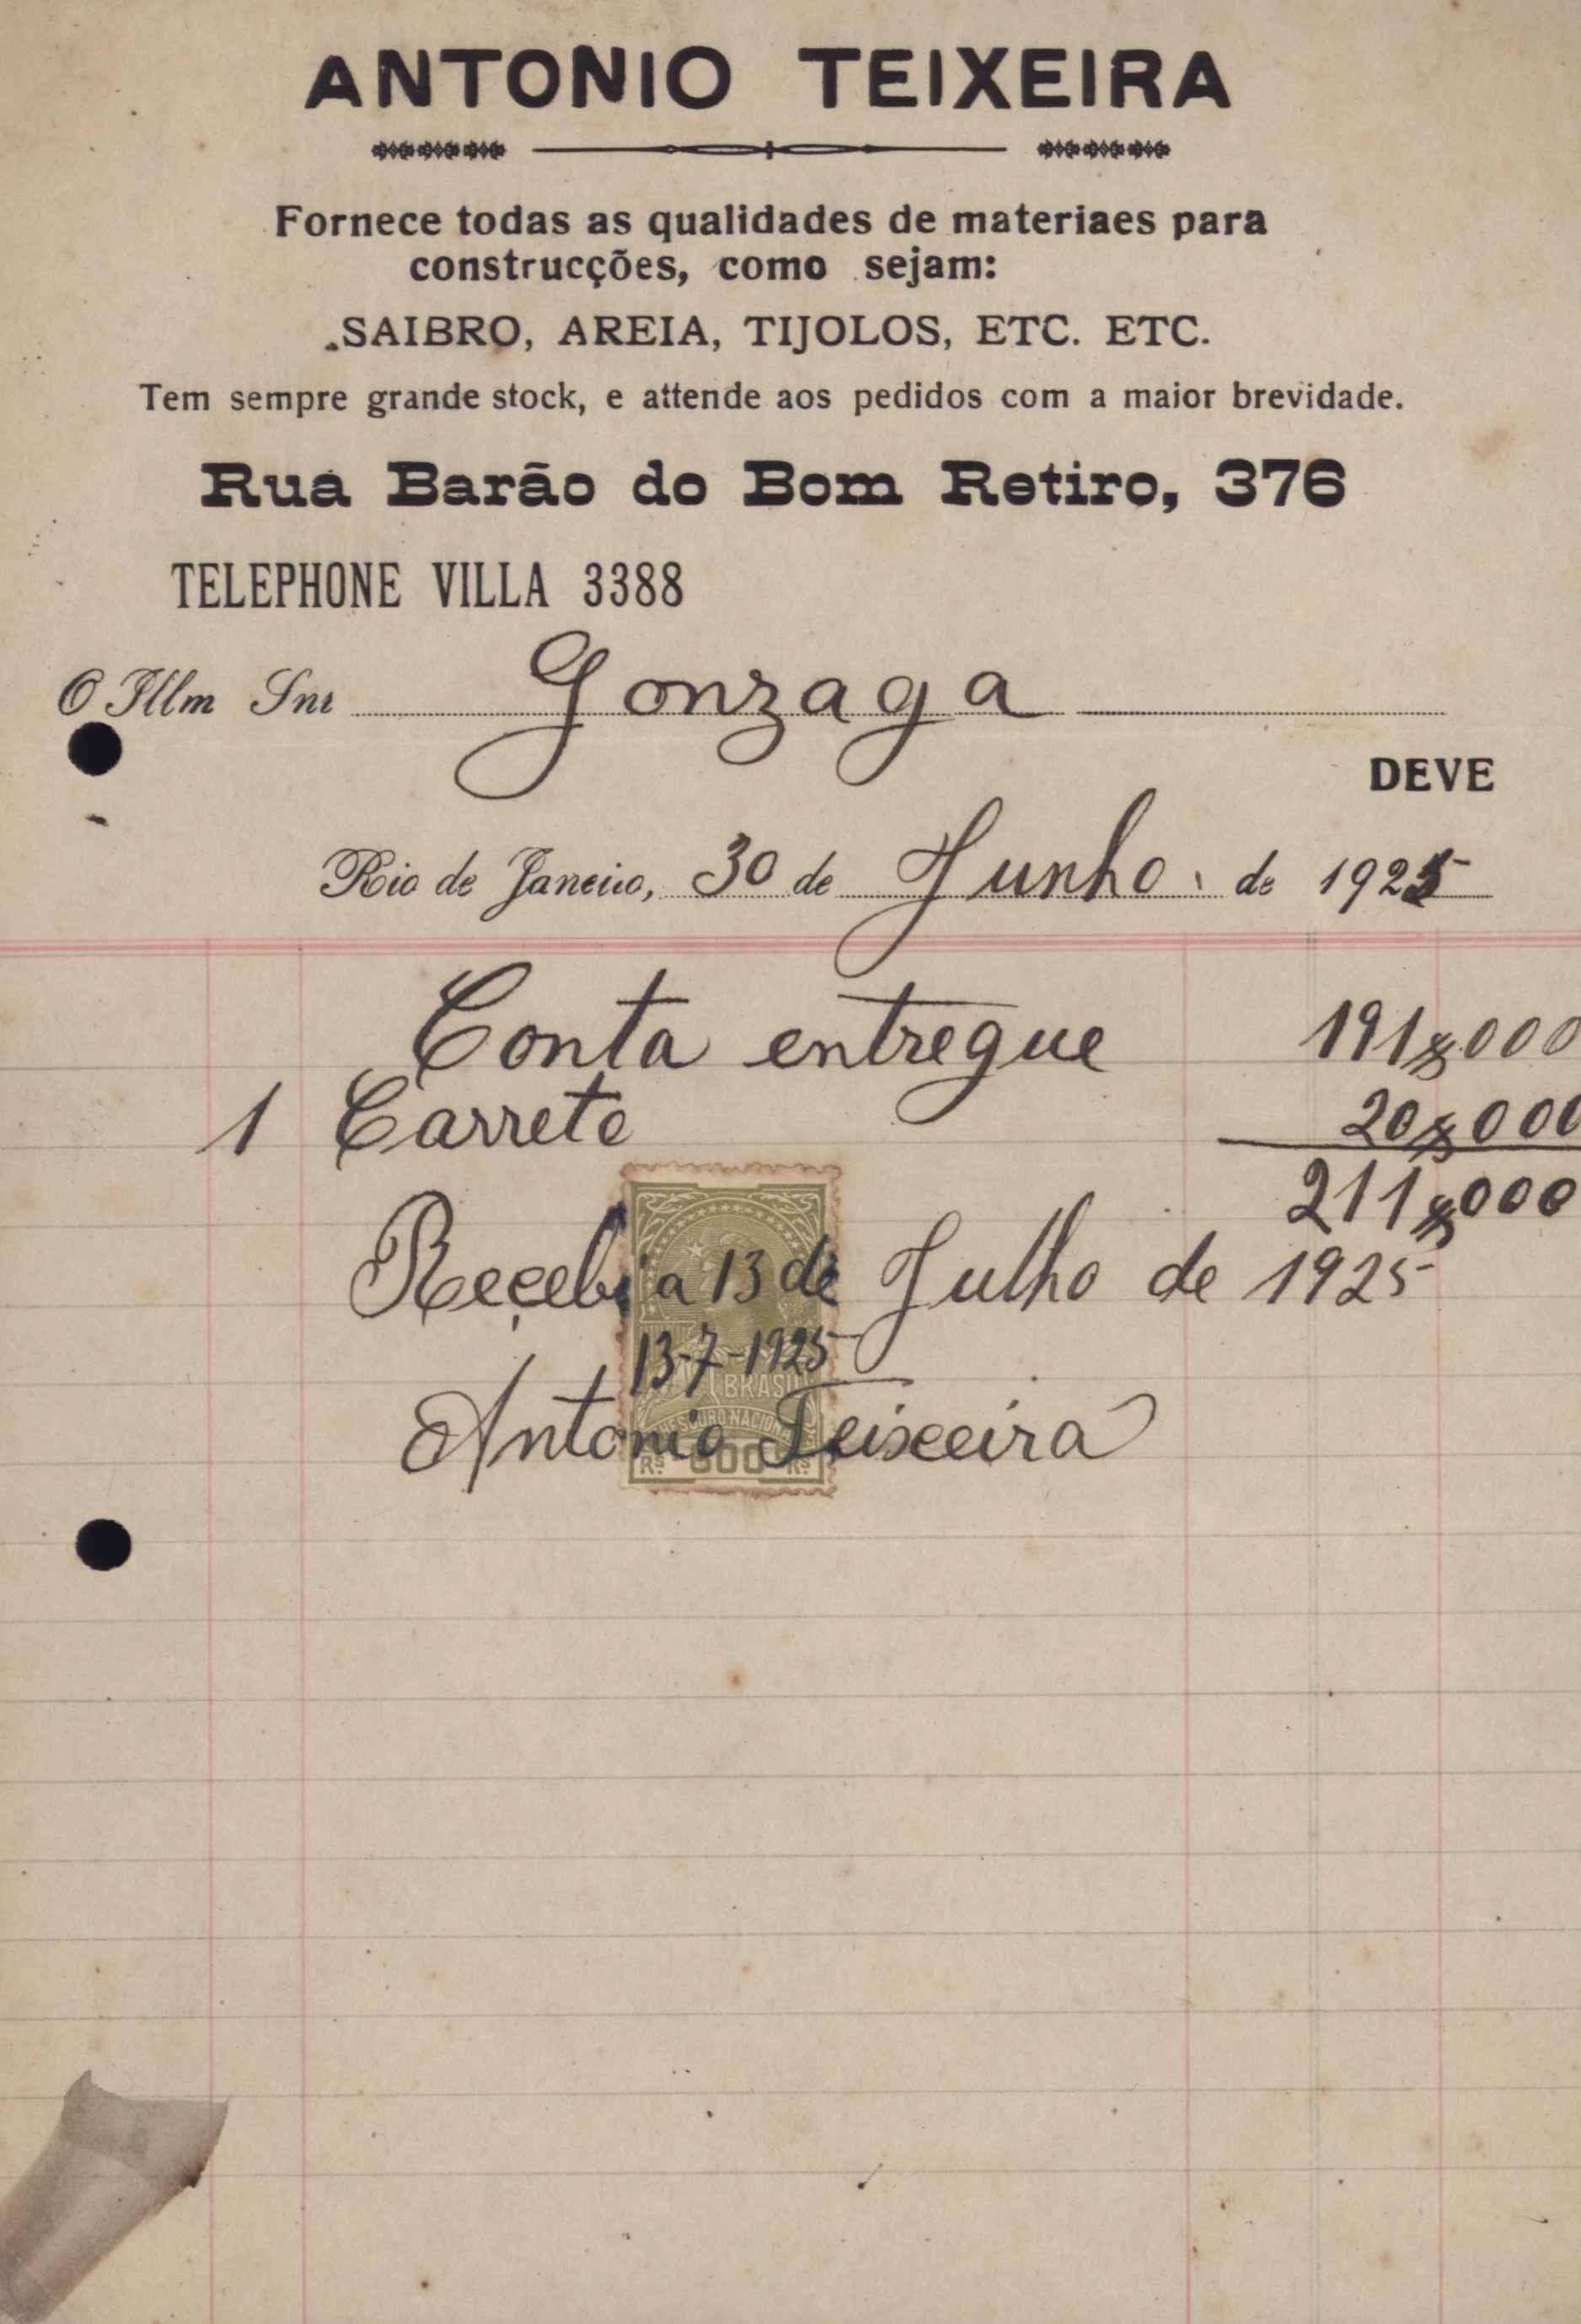 ANTONIO TEIXEIRA
Fornece todas as qualidades de materiaes para
construcções, como sejam:
SAIBRO, AREIA, TIJOLOS, ETC. ETC.
Tem sempre grande stock, e attende aos pedidos com a maior brevidade.
Rua Barão do Bom Retiro, 376
TELEPHONE VILLA 3388
O Illm Snr Gonzaga
DEVE
Rio de Janeiro, 30 de Junho de 1925
Conta entregue 191$000
1 Carreto 20$000
211$000
Recebi a 13 de Julho de 1925
13-7-1925
BRASIL
Antonio Teixeira
THESOURO NACIONAL
Rs 600 Rs